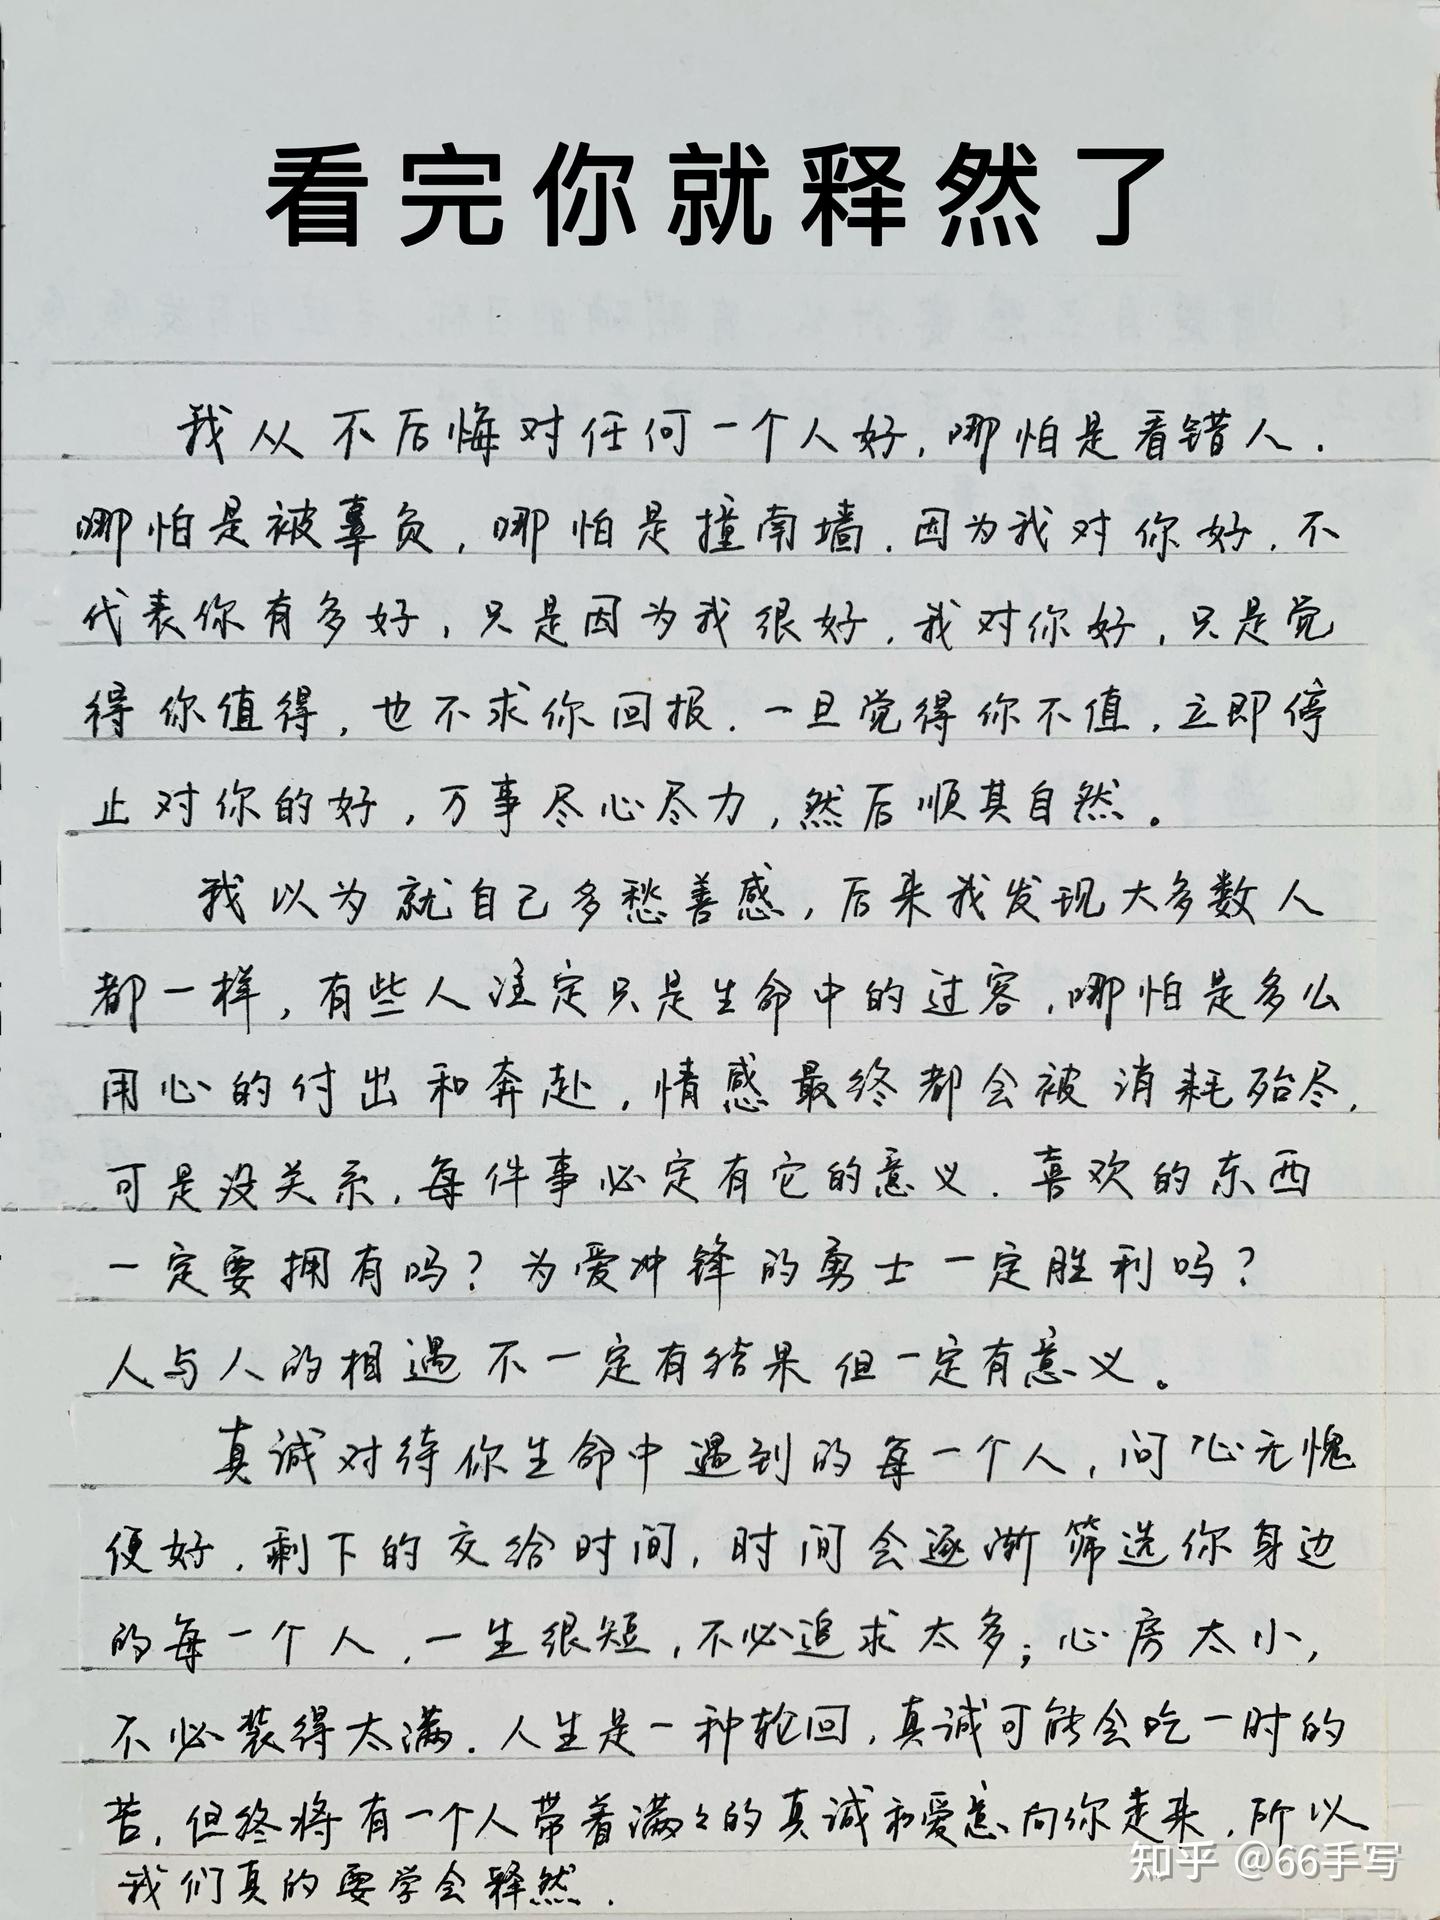 看完你就释然了
我从不后悔对任何一个人好,哪怕是看错人.
哪怕是被辜负,哪怕是撞南墙.因为我对你好.不
代表你有多好,只是因为我很好.我对你好,只是觉
得你值得,也不求你回报.一旦觉得你不值,立即停
止对你的好,万事尽心尽力,然后顺其自然。
我以为就自己多愁善感,后来我发现大多数人
都一样,有些人注定只是生命中的过客.哪怕是多么
用心的付出和奔赴,情感最终都会被消耗殆尽.
可是没关系.每件事必定有它的意义.喜欢的东西
一定要拥有吗?为爱冲锋的勇士一定胜利吗?
人与人的相遇不一定有结果但一定有意义。
真诚对待你生命中遇到的每一个人,问心无愧
便好.剩下的交给时间,时间会逐渐筛选你身边
的每一个人.一生很短,不必追求太多;心房太小,
不必装得太满.人生是一种轮回,真诚可能会吃一时的
苦,但终将有一个人带着满々的真诚和爱意向你走来.所以
我们真的要学会释然.
知乎 @66手写